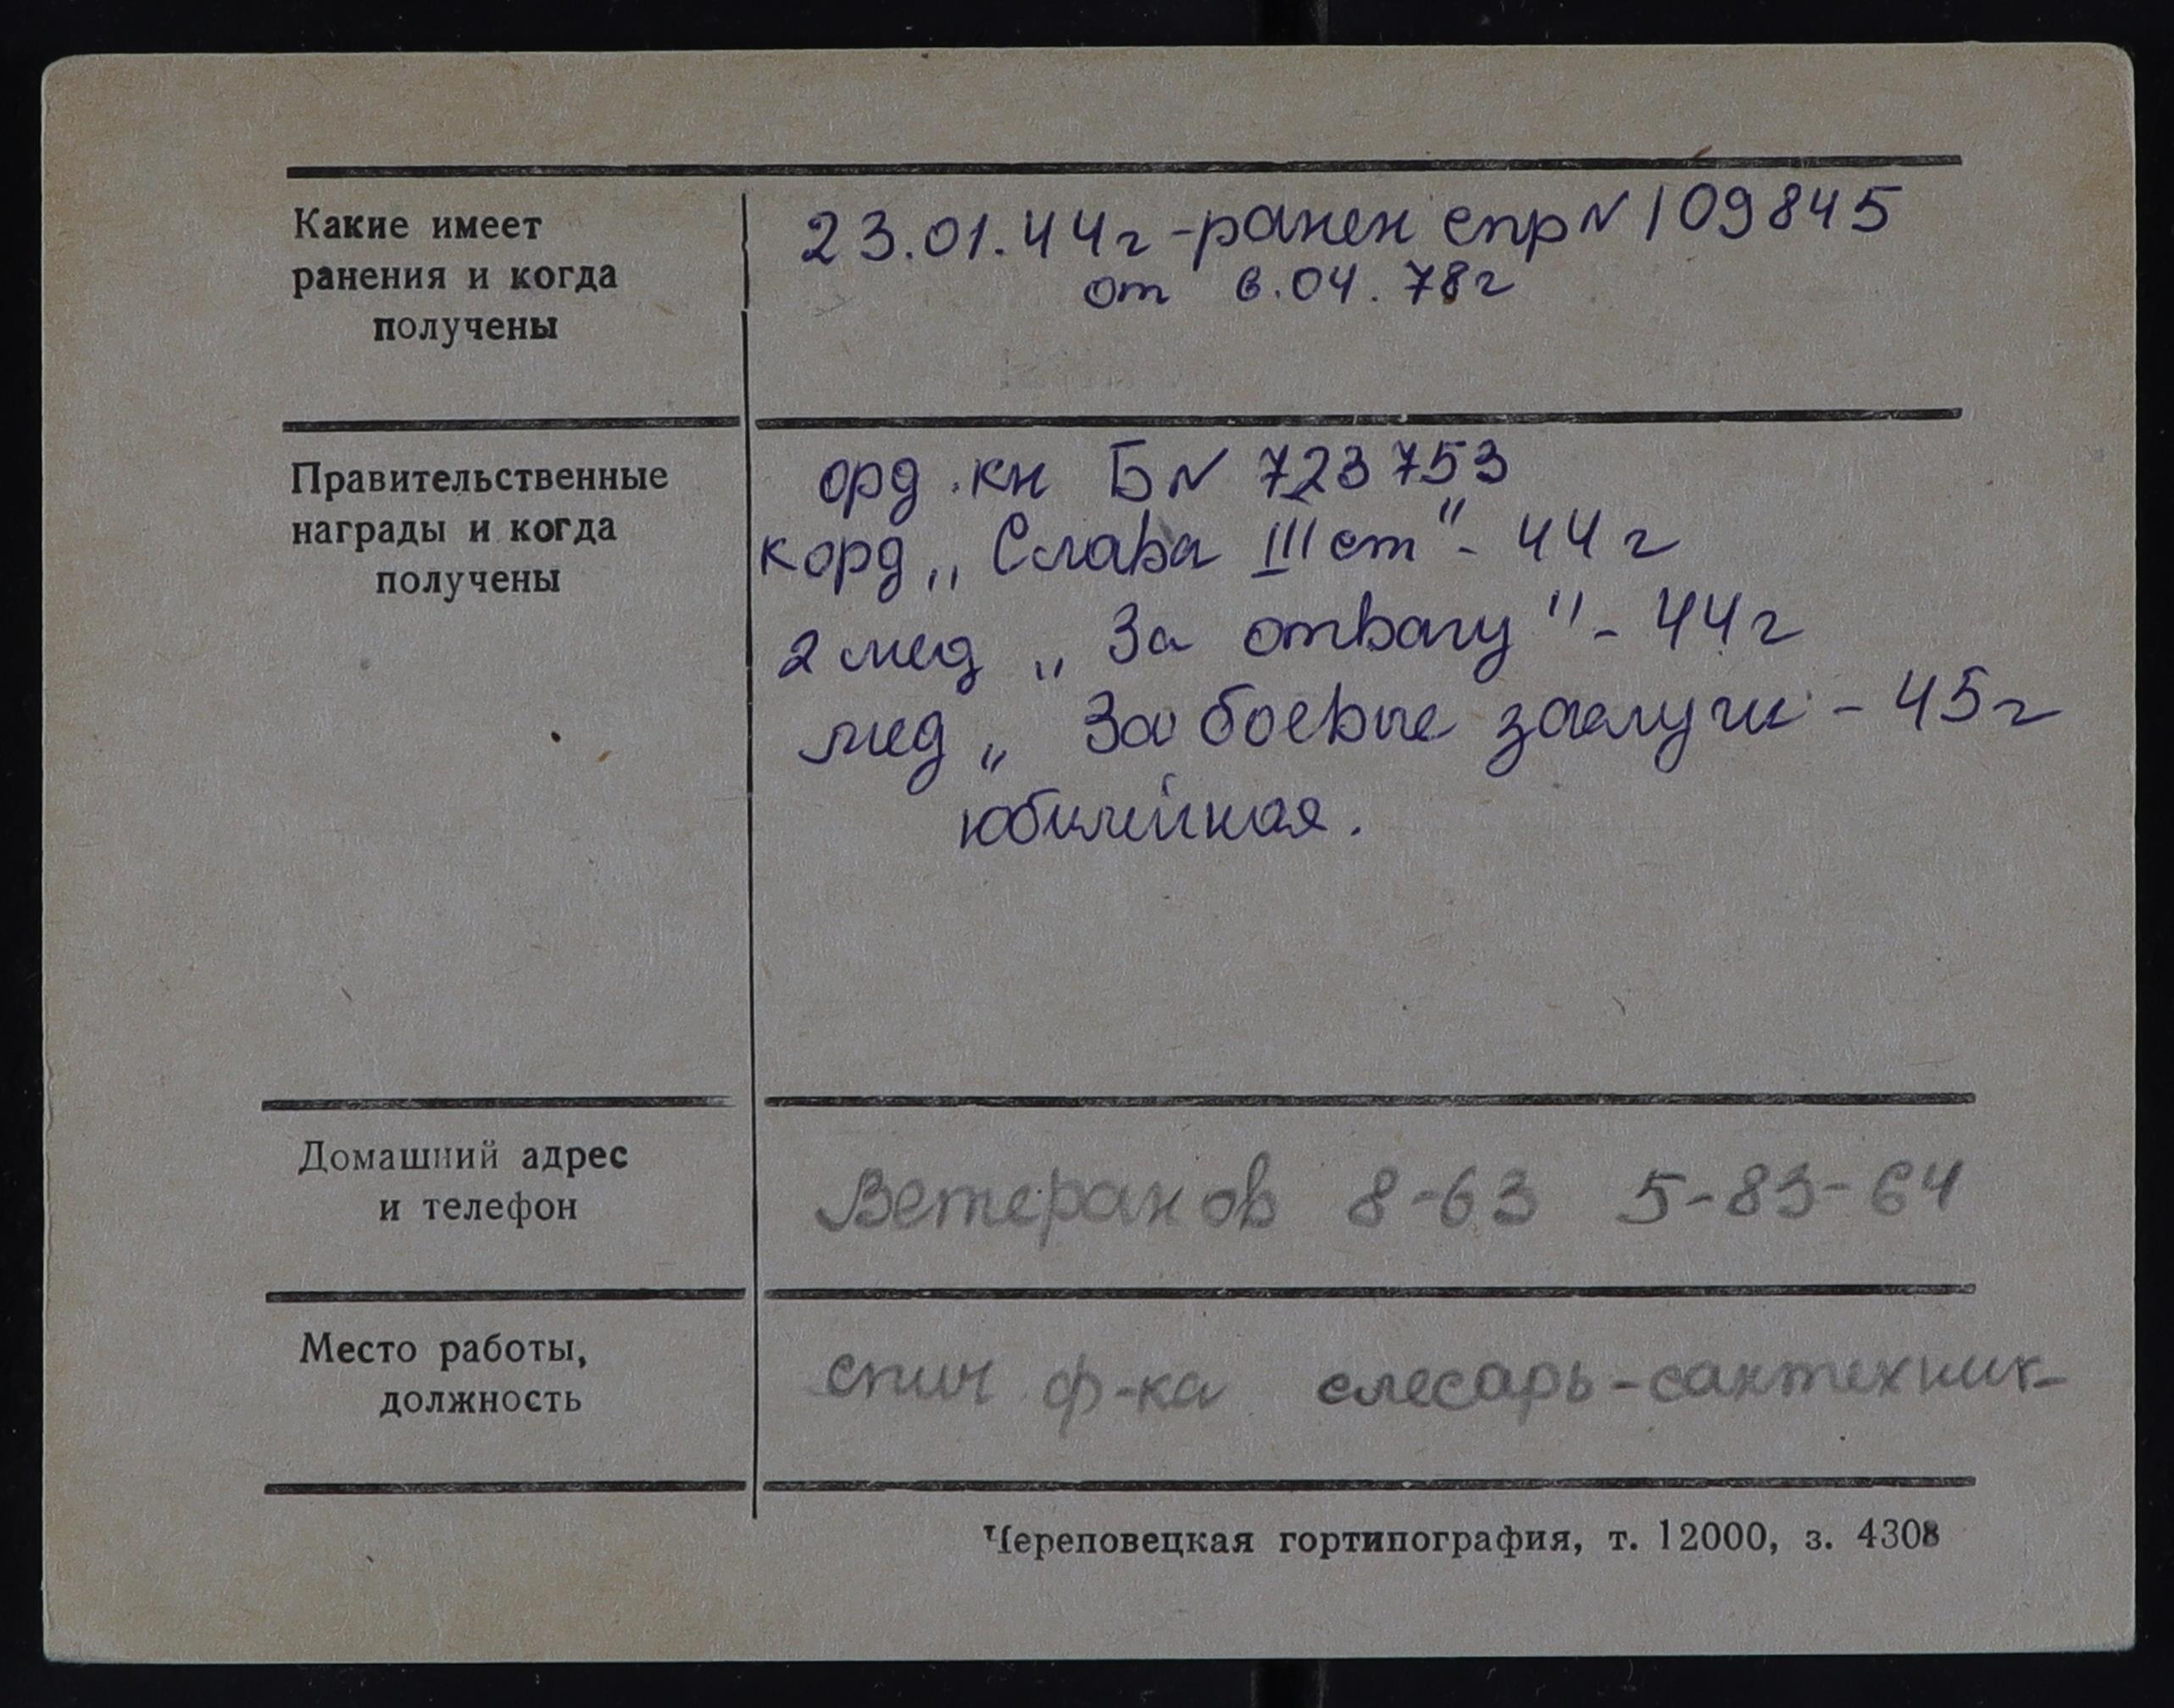 Какие имеет
ранения и когда
получены
23.01.44г -ранен спр N 109845
от 6.04.78г
Правительственные
награды и когда
получены
орд.кн Б N 723753
к орд „Слава III ст" - 44 г
2 мед „За отвагу" - 44 г
мед „За боевые заслуги - 45 г
юбилейная.
Домашний адрес
и телефон
Ветеранов 8-63 5-83-64
Место работы,
должность
спич ф-ка слесарь-сантехник-
Череповецкая гортипография, т. 12000, з. 4308